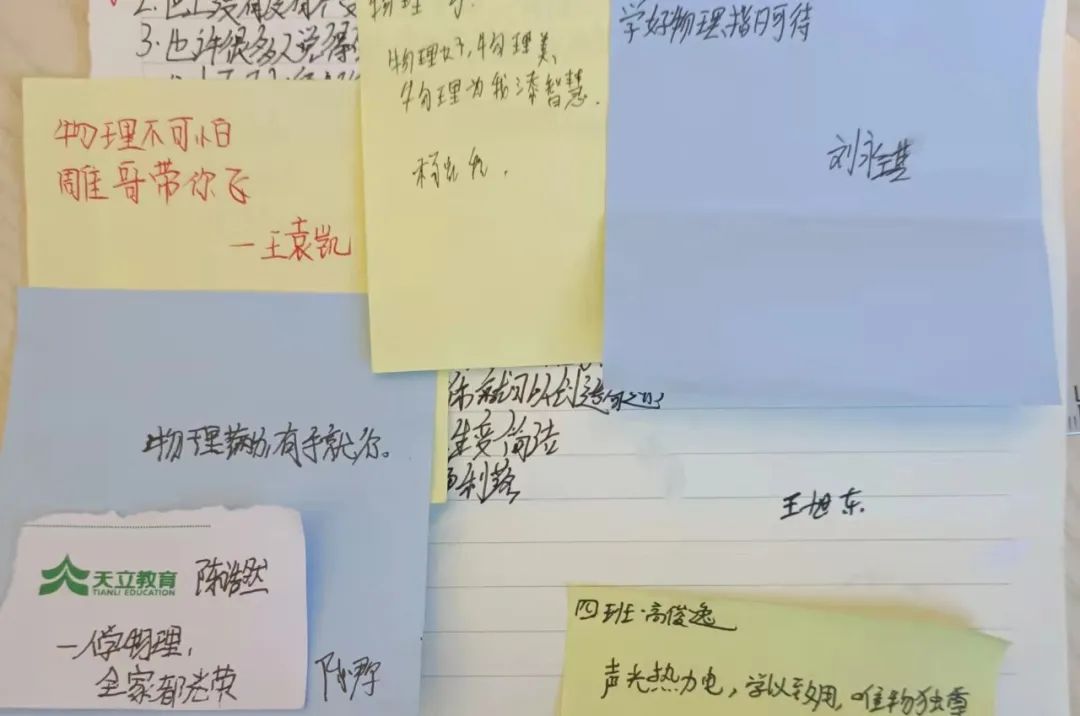 3.也许很多人觉得
物理好,物理美,
物理为我添智慧.
学好物理,指日可待
刘永琪
物理不可怕
雕哥带你飞
—王袁凯
物理 有手就行。
生要简洁
利落
王旭东
天立教育
TIANLI EDUCATION
陈浩然
一人学物理,
全家都光荣
四班·高俊逸
声光热力电,学以致用,唯物独尊